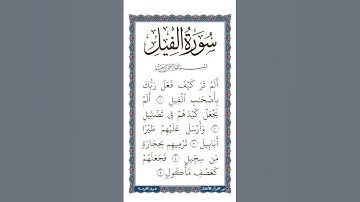 سُورَةُ الْفِيلِ
بِسْمِ اللَّهِ الرَّحْمَٰنِ الرَّحِيمِ
أَلَمْ تَرَ كَيْفَ فَعَلَ رَبُّكَ
بِأَصْحَٰبِ ٱلْفِيلِ ١ أَلَمْ
يَجْعَلْ كَيْدَهُمْ فِى تَضْلِيلٍ
٢ وَأَرْسَلَ عَلَيْهِمْ طَيْرًا
أَبَابِيلَ ٣ تَرْمِيهِم بِحِجَارَةٍ
مِّن سِجِّيلٍ ٤ فَجَعَلَهُمْ
كَعَصْفٍ مَّأْكُولٍ ٥